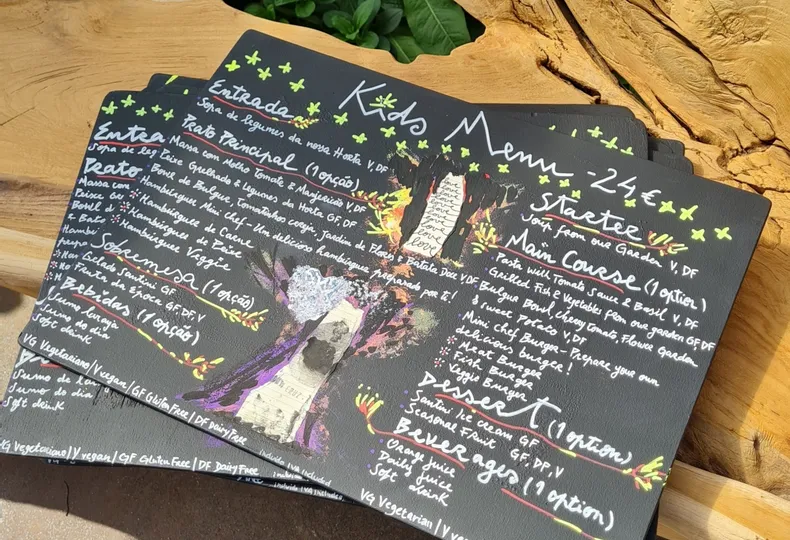 Kids Menu - 24€
Entrada
Sopa de legumes da nossa Horta V, DF
Prato Principal (1 opção)
Massa com Molho Tomate & Manjericão V, DF
Peixe Grelhado & Legumes da Horta GF, DF
Bowl de Bulgur, Tomatinhos coração, Jardim de Flores & Batata Doce V, DF
Hambúrguer Mini Chef - Um delicioso hambúrguer preparado por ti!
Hambúrguer de Carne
Hambúrguer de Peixe
Hambúrguer Veggie
Sobremesa (1 opção)
Gelado Santini GF
Fruta da Época GF, DF, V
Bebidas (1 opção)
Sumo laranja
Sumo do dia
Soft drink
VG Vegetariano / V vegan / GF Gluten Free / DF Dairy Free
love
love
love
love
love
love
love
Starter
Soup from our Garden V, DF
Main Course (1 option)
Pasta with Tomato Sauce & Basil V, DF
Grilled Fish & Vegetables from our garden GF, DF
Bulgur Bowl Cherry Tomato, Flower Garden
& Sweet Potato V, DF
Mini Chef Burger - Prepare your own
delicious burger!
Meat Burger
Fish Burger
Veggie Burger
Dessert (1 option)
Santini Ice cream GF
Seasonal Fruit GF, DF, V
Beverages (1 option)
Orange Juice
Daily Juice
Soft drink
VG Vegetarian / V
Entra
Sopa de leg
Prato
Massa com
Peixe Gr
Bowl d
& Bata
Hambú
Sumo de lar
Sumo do dia
Soft drink
VG Vegetariano / V vegan / GF Gluten Free / DF Dairy Free